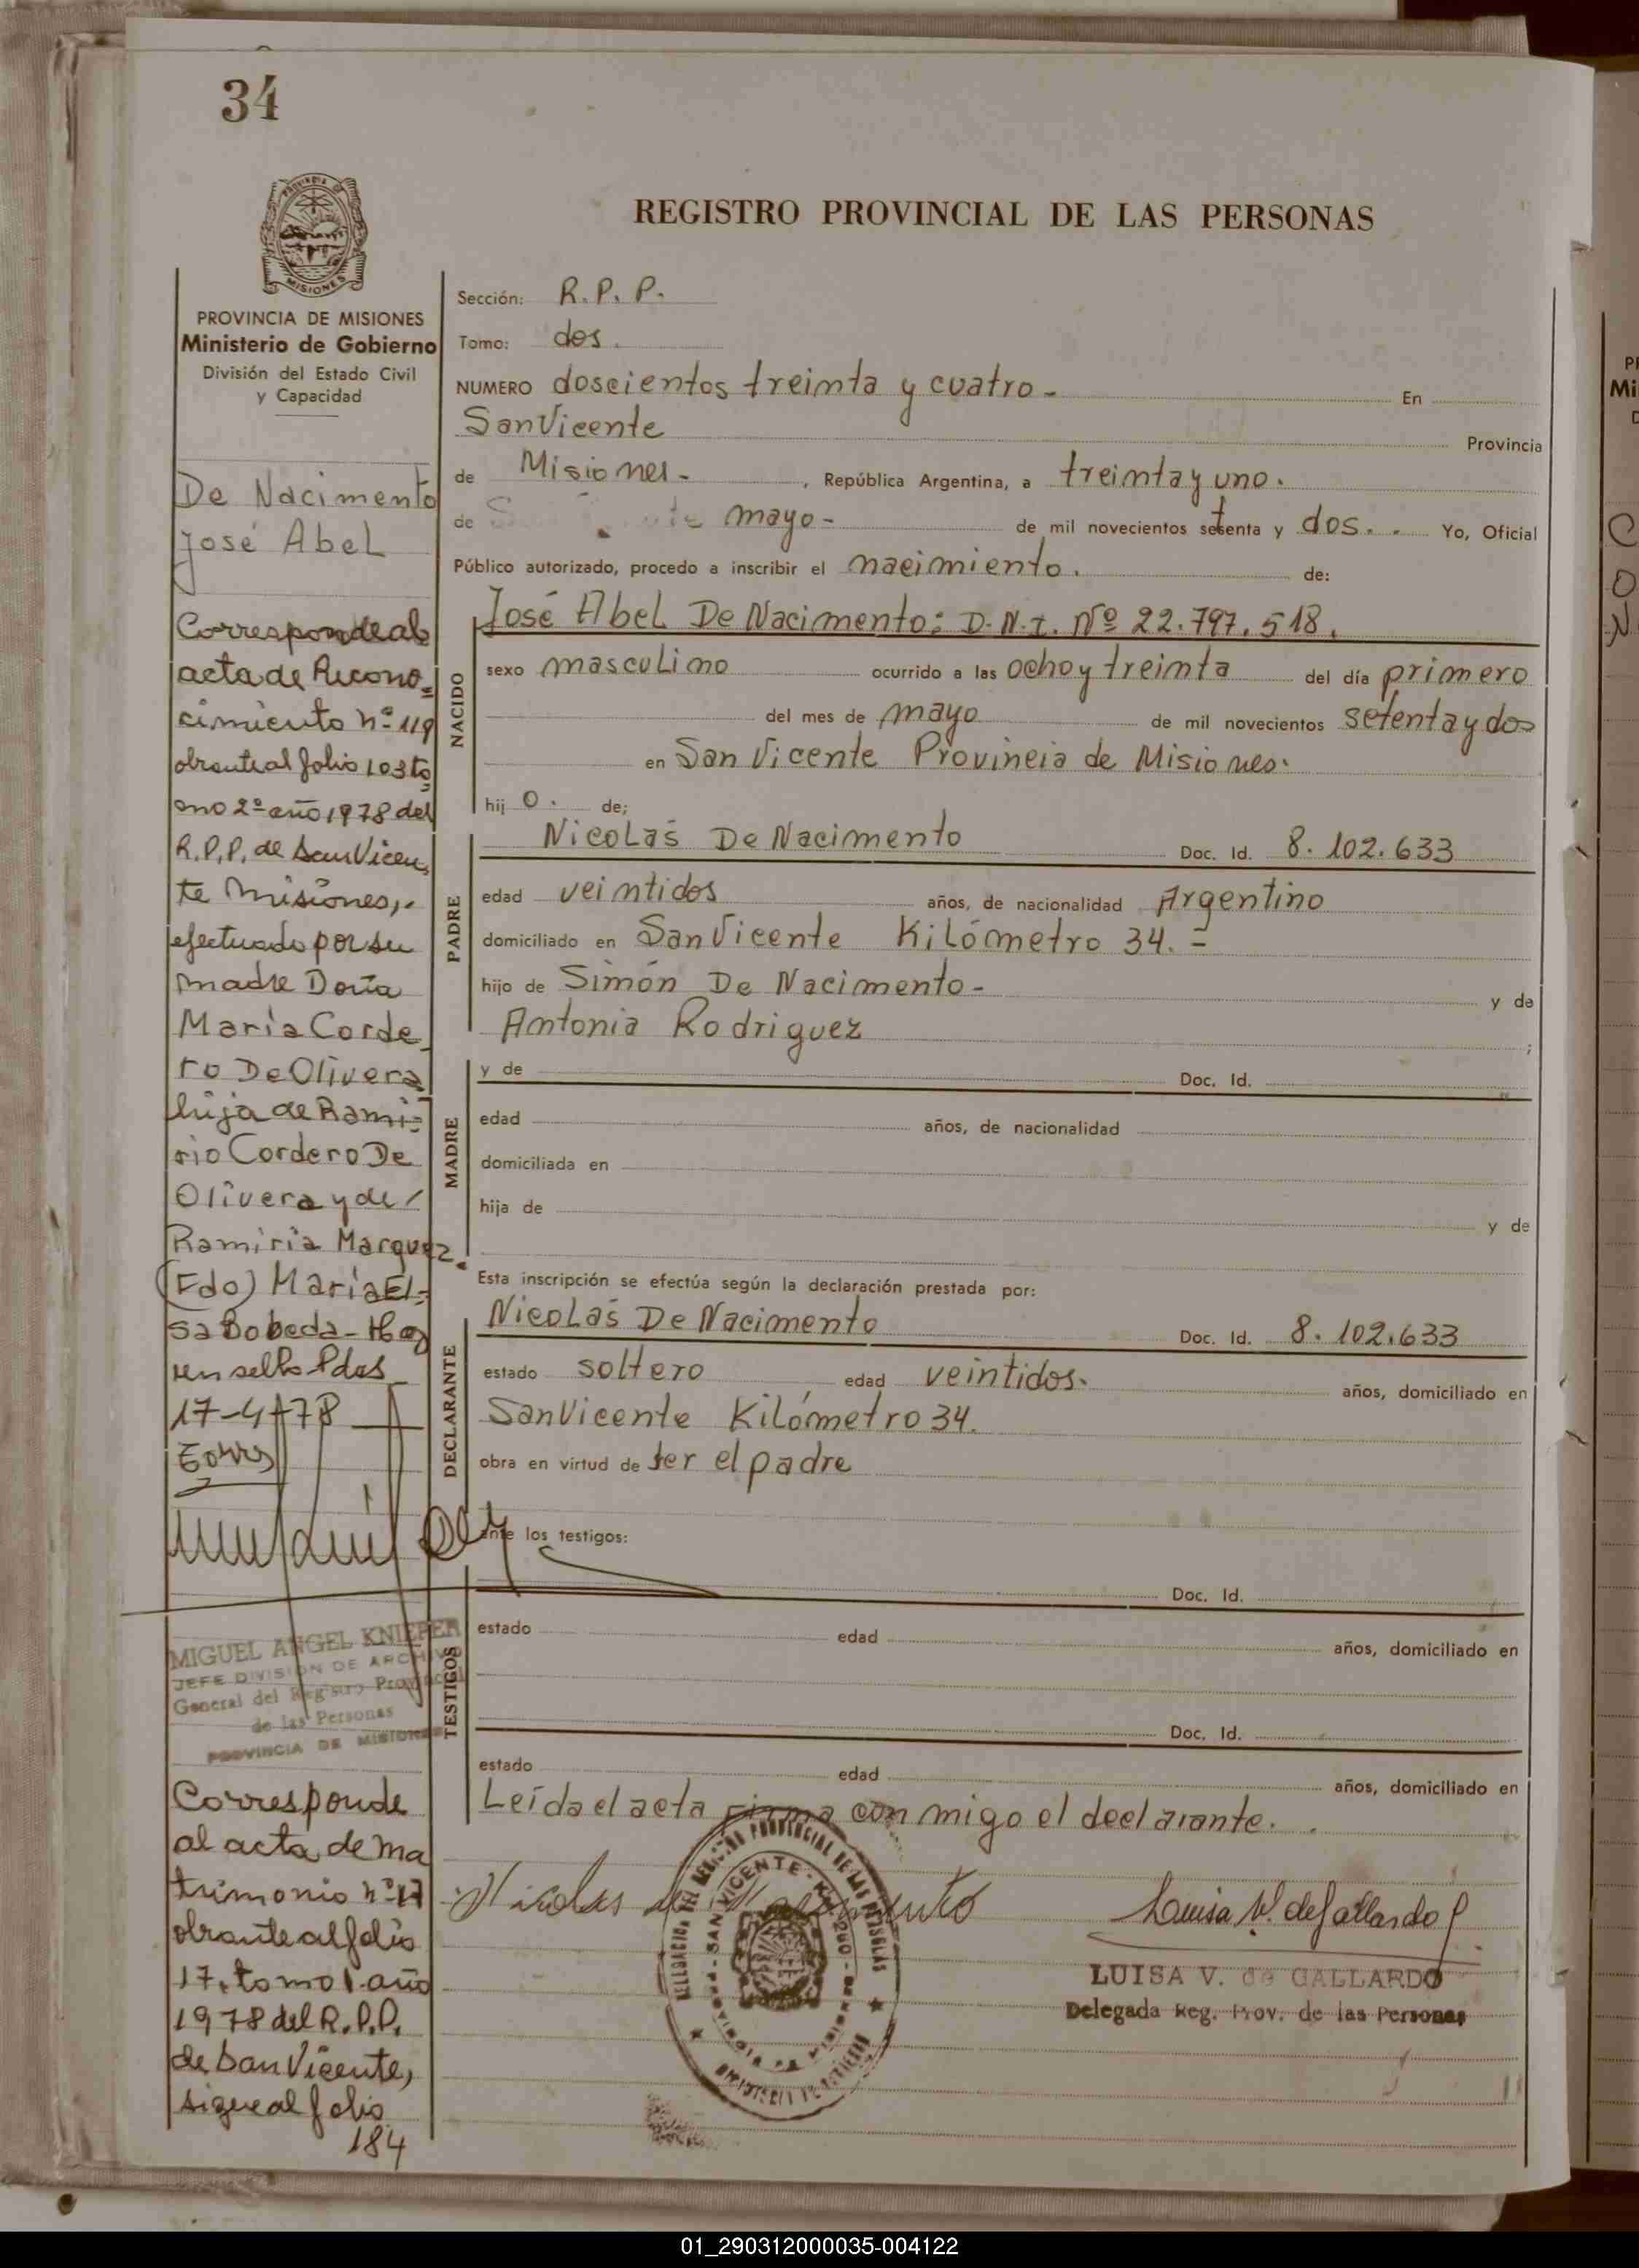 34
PROVINCIA DE
MISIONES
PROVINCIA DE MISIONES
Ministerio de Gobierno
División del Estado Civil
y Capacidad
De Nacimento
José Abel
Corresponde al
acta de Recono=
cimiento nº 119
obrante al folio 103 to
mo 2º año 1978 del
R.P.P. de San Vicen
te Misiones,
efectuado por su
madre Doña
María Corde
ro De Olivera
hija de Rami=
rio Cordero De
Olivera y de
Ramiria Marquez.
(Fdo) María El=
sa Bobeda - Hay
un sello Pdas
17-4-78
MIGUEL ANGEL KNIEPER
JEFE DIVISION DE ARCHIVO
General del Registro Provincial
de las Personas
PROVINCIA DE MISIONES
Corresponde
al acta de ma
trimonio nº 17
obrante al folio
17, tomo 1 año
1978 del R.P.P.
de San Vicente,
sigue al folio
184
REGISTRO PROVINCIAL DE LAS PERSONAS
Sección: R. P. P.
Tomo: dos.
NUMERO doscientos treinta y cuatro - En
San Vicente Provincia
de Misiones - , República Argentina, a treinta y uno.
de mayo - de mil novecientos setenta y dos. . Yo, Oficial
Público autorizado, procedo a inscribir el nacimiento. de:
José Abel De Nacimento: D.N.I. Nº 22.797.518.
NACIDO
sexo masculino ocurrido a las ocho y treinta del día primero
del mes de mayo de mil novecientos setenta y dos
en San Vicente Provincia de Misiones.
hij o. de;
PADRE
Nicolás De Nacimento Doc. Id. 8.102.633
edad veintidos años, de nacionalidad Argentino
domiciliado en San Vicente Kilómetro 34. =
hijo de Simón De Nacimento - y de
Antonia Rodriguez ;
MADRE
y de Doc. Id.
edad años, de nacionalidad
domiciliada en
hija de y de
Esta inscripción se efectúa según la declaración prestada por:
DECLARANTE
Nicolás De Nacimento Doc. Id. 8.102.633
estado soltero edad veintidos. años, domiciliado en
San Vicente Kilómetro 34.
obra en virtud de ser el padre
ante los testigos:
TESTIGOS
Doc. Id.
estado edad años, domiciliado en
Doc. Id.
estado edad años, domiciliado en
Leída el acta firma conmigo el declarante. .
Nicolas de Nacimento
DELEGACION DEL REGISTRO PROVINCIAL DE LAS PERSONAS
SAN VICENTE
Luisa V. de Gallardo
LUISA V. de GALLARDO
Delegada Reg. Prov. de las Personas
01_290312000035-004122